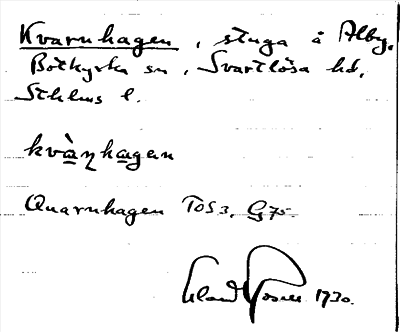 Kvarnhagen, stuga å Alby,
Botkyrka sn, Svartlösa hd,
Sthlms l.
kvàŋhagen
Quarnhagen TOS 3, G 75.
1930.